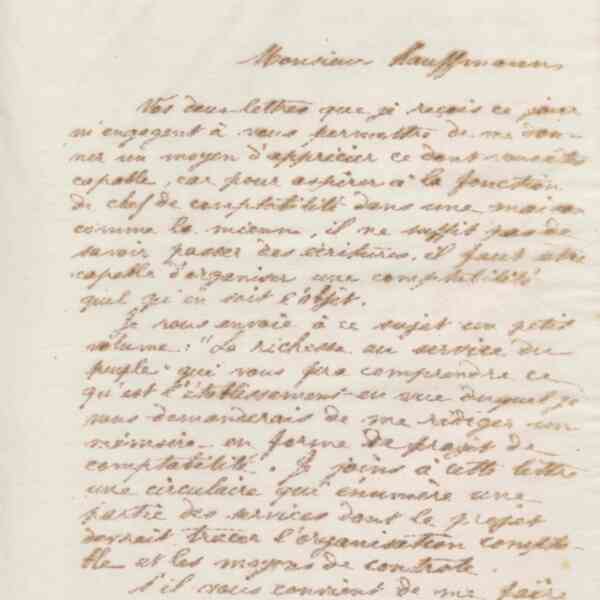 Monsieur Kauffmann,
Vos deux lettres que je reçois ce jour
m'engagent à vous permettre de me don-
ner un moyen d'apprécier ce dont vous êtes
capable, car pour aspirer à la fonction
de chef de comptabilité dans une maison
comme la mienne, il ne suffit pas de
savoir passer des écritures, il faut être
capable d'organiser une comptabilité
quel qu'en soit l'objet.
Je vous envoie à ce sujet un petit
volume : "La richesse au service du
peuple" qui vous fera comprendre ce
qu'est l'établissement en vue duquel je
vous demanderais de me rédiger un
mémoire en forme de projet de
comptabilité. Je joins à cette lettre
une circulaire qui énumère une
partie des services dont le projet
devrait tracer l'organisation compta-
ble et les moyens de contrôle.
S'il vous convient de me faire